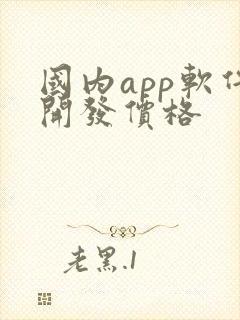 國内app軟件
開發價格
老黑.1